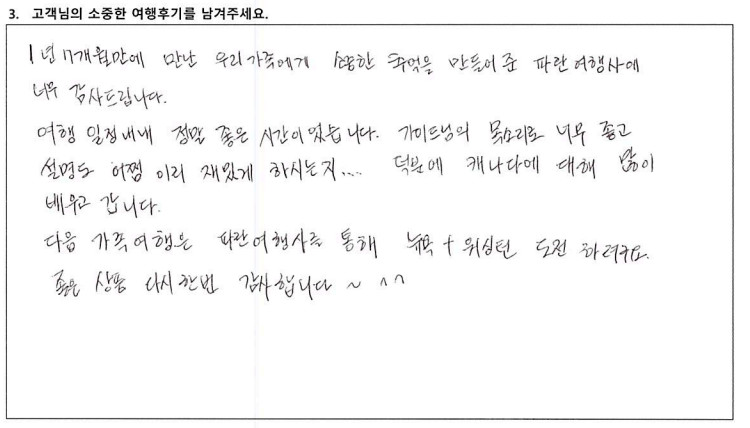 3. 고객님의 소중한 여행후기를 남겨주세요.
1년 11개월만에 만난 우리가족에게 소중한 추억을 만들어준 파란여행사에
너무 감사드립니다.
여행 일정내내 정말 좋은 시간이었습니다. 가이드님의 목소리도 너무 좋고
설명도 어쩜 이리 재밌게 하시는지.... 덕분에 캐나다에 대해 많이
배우고 갑니다.
다음 가족여행은 파란여행사를 통해 뉴욕 + 워싱턴 도전 하려구요.
좋은 상품 다시한번 감사합니다 ~ ^^